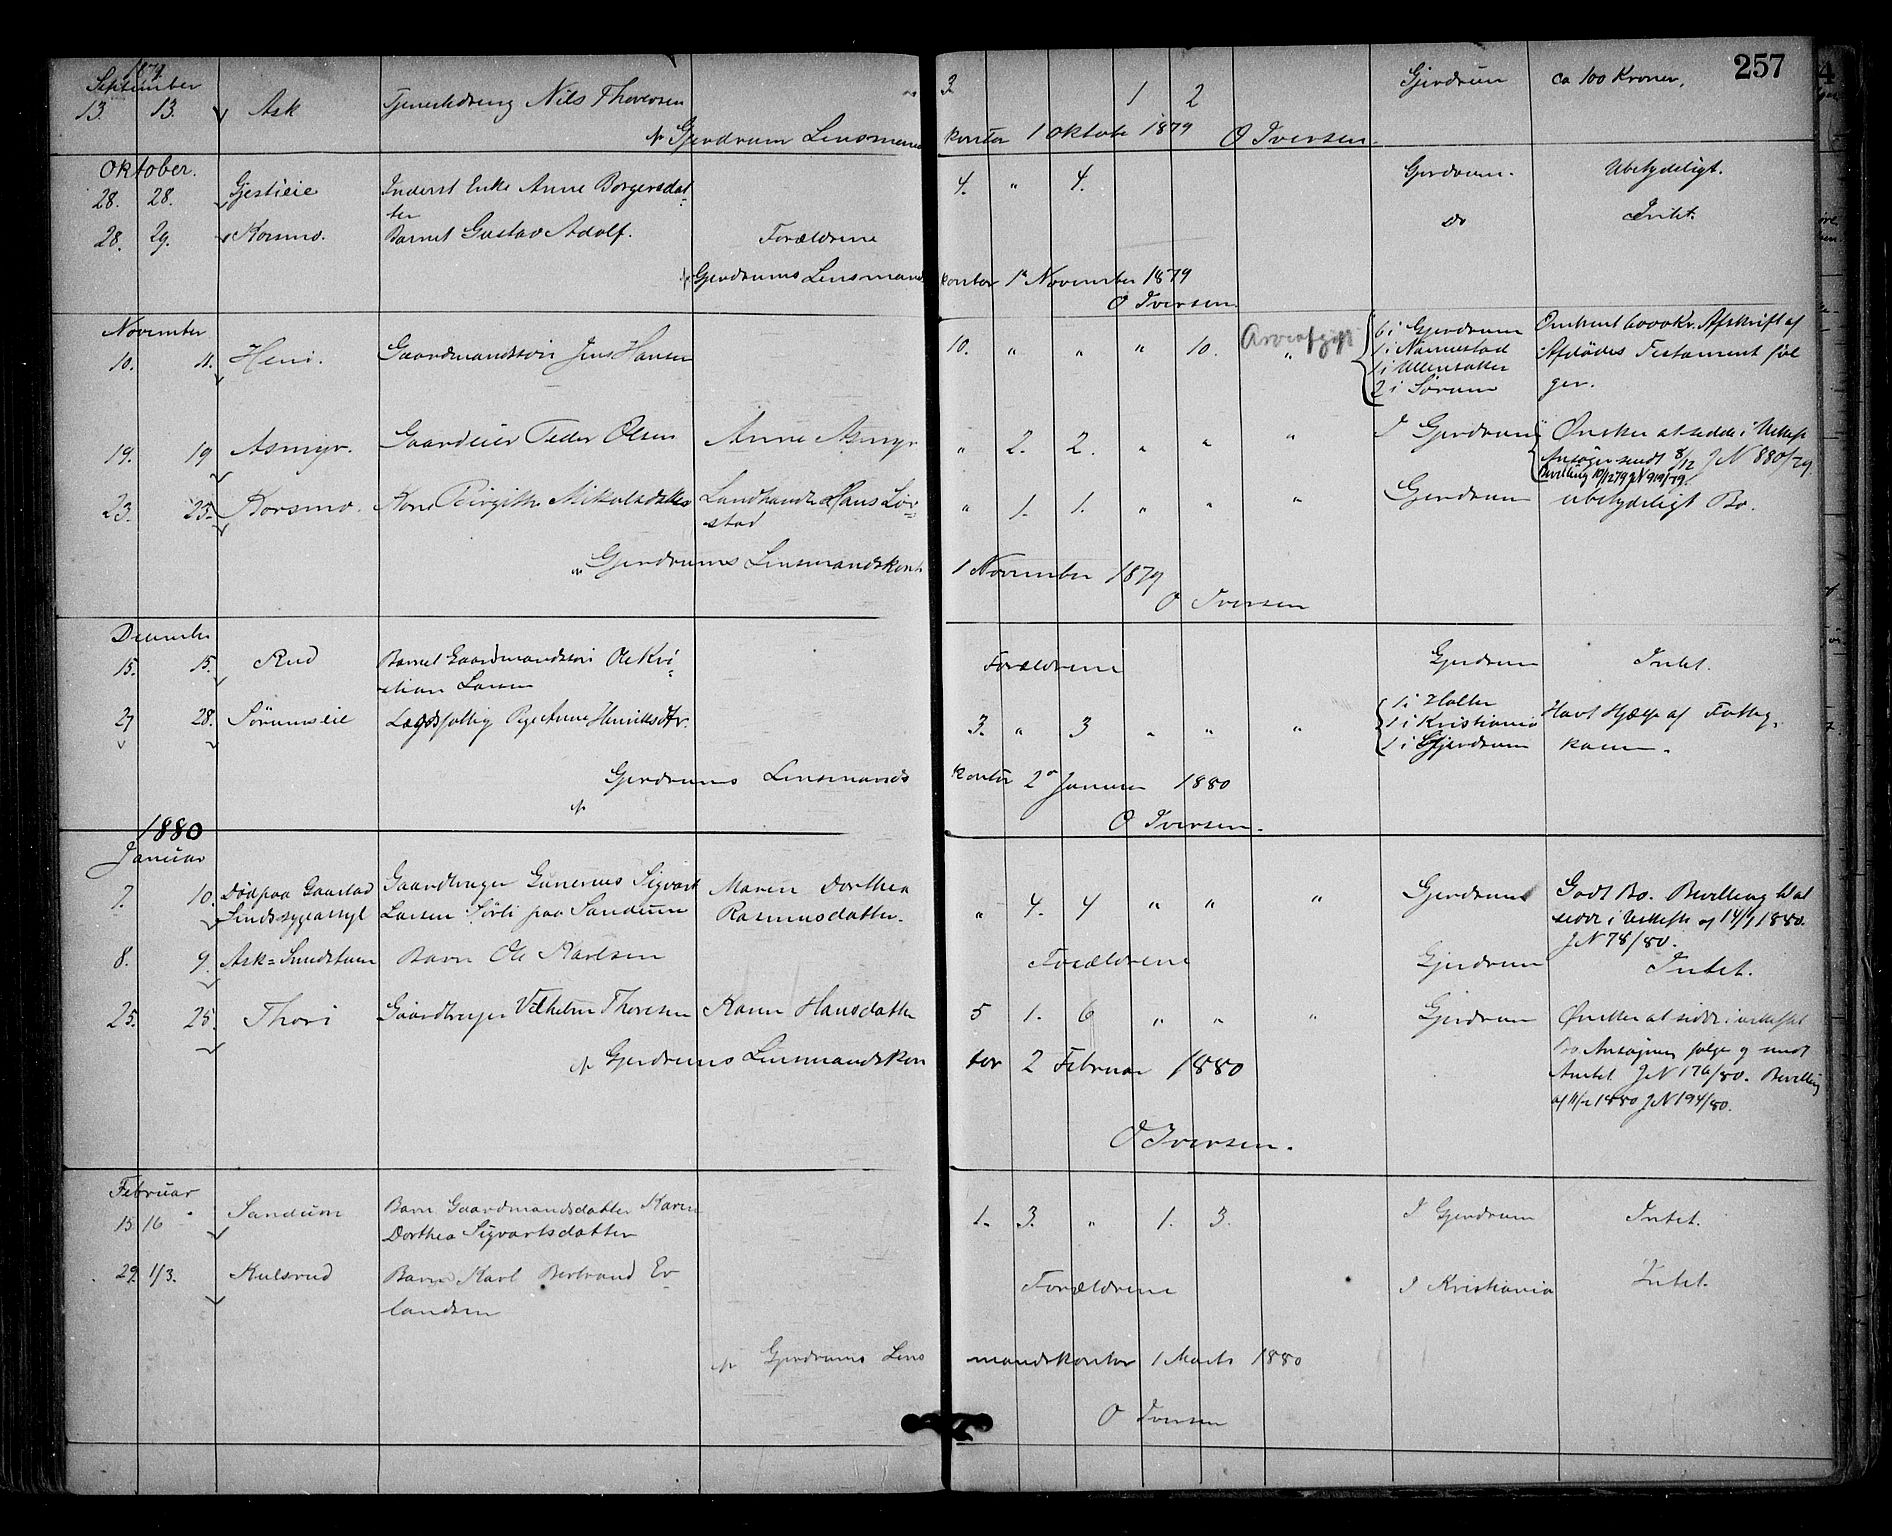 257
1879
September
13. 13. Ask Tjenestedreng Nils Thoresen 3 1 2 Gjerdrum ca 100 Kroner.
Gjerdrum Lensmands kontor 1 Oktober 1879 O Iversen.
Oktober.
28. 28. Gjestieie Inderst Enke Anne Borgersdat- 4. " 4. Gjerdrum. Ubetydeligt.
ter
28. 29. Korsmo. Barnet Gustav Adolf. Forældrene Do Intet.
Gjerdrums Lensmands kontor 1 November 1879
O Iversen.
November
10. 11. Heni. Gaardmandssøn Jens Hansen 10. " " " 10. Arveafgift "
6 i Gjerdrum
1 i Nannestad
1 i Ullensaker
2 i Sørum
Omtrent 6000 Kr. Afskrift af
Afdødes Testament føl
ger.
19. 19 Asmyr. Gaardeier Peder Olsen Anne Asmyr " 2. 2. " " " I Gjerdrum Ønsker at sidde i Uskift
Ansøgn sendt 8/12 JN 880/79.
Bevilling 10/12 79 JN 919/79.
23. 25. Korsmo. Kone Birgitte Mikkelsdatter Landhandler Hans Løv- " 1. 1. " " " Gjerdrum ubetydeligt Bo.
stad
Gjerdrums Lensmandskont 1 November 1879
O Iversen
December
15. 15. Rud Barnet Gaardmandssøn Ole Kri- Forældrene Gjerdrum Intet.
stian Larsen
27 28. Sørumseie Lægdsfattig Pige Anne Henriksdtr. 3. " 3 " " "
1 i Holter
1 i Kristiania
1 i Gjerdrum
Havt Hjælp af Fattig-
kassen.
Gjerdrums Lensmands kontor 2 Januar 1880
O Iversen.
1880
Januar
7. 10. Død paa Gaustad Gaardbruger Gunerius Sigvart Maren Dorthea " 4. 4 " " " Gjerdrum Godt Bo. Bevilling til at
Sindssygeasyl Larsen Sørli paa Sandum Rasmusdatter. sidde i Uskifte af 14/1 1880.
JN 78/80.
8. 9. Ask-Smedstuen Barn Ole Karlsen Forældrene Gjerdrum Intet.
25. 25. Thori Gaardbruger Vilhelm Thoresen Karen Hansdatter 5 1. 6 " " " Gjerdrum Ønsker at sidde i uskiftet
Bo Ansøgnen følge og sendt
Amtet JN 176/80. Bevilling
af 11/2 1880 JN 194/80.
Gjerdrums Lensmandskon tor 2 Februar 1880
O Iversen.
Februar
15 16 Sandum Barn Gaardmandsdatter Karen 1. 3. " 1. 3. I Gjerdrum Intet.
Dorthea Sigvartsdatter
29. 1/3. Kulsrud Barn Karl Bertrand Er- Forældrene I Kristiania Intet.
landsen
Gjerdrums Lens mandskontor 1 Marts 1880
O Iversen